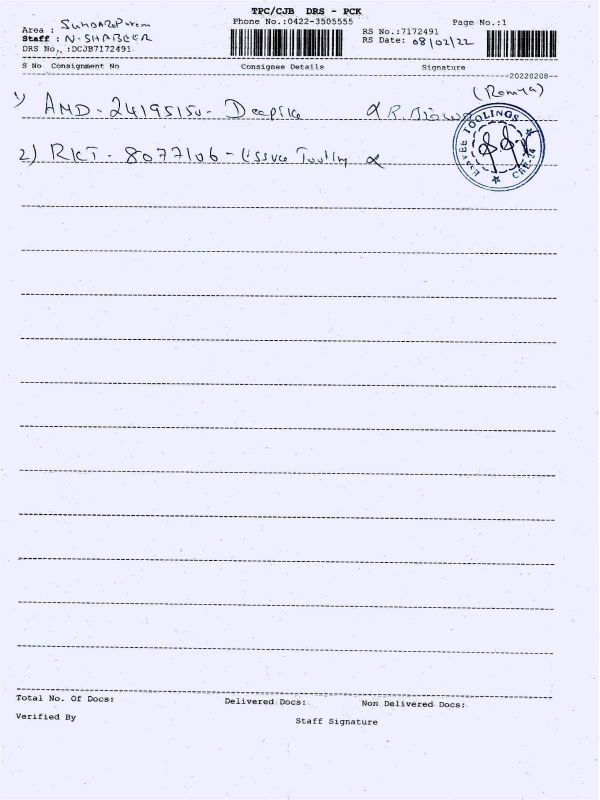 TPC/CJB DRS - PCK
Phone No.:0422-3505555
Page No.:1
Area : SUNDARAPuram
Staff : N.SHABEER
DRS No. :DCJB7172491
RS No.:7172491
RS Date: 08/02/22
S No Consignment No Consignee Details Signature
20220208
(Ramya)
1) AMD - 24195150 - Deepika R.
2) RKT - 8077106 - Essvee Tooling
ESSVEE TOOLINGS
CBE-14
Total No. Of Docs: Delivered Docs: Non Delivered Docs:
Verified By
Staff Signature